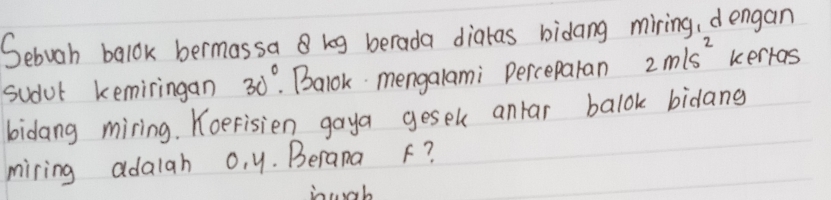 Sebuah balok bermassa 8 kg berada diatas bidang miring, dengan
sudut kemiringan 30°. Balok mengalami percepatan 2 m/s² kertas
bidang miring. Koefisien gaya gesek antar balok bidang
miring adalah 0,4. Berapa F?
jawab